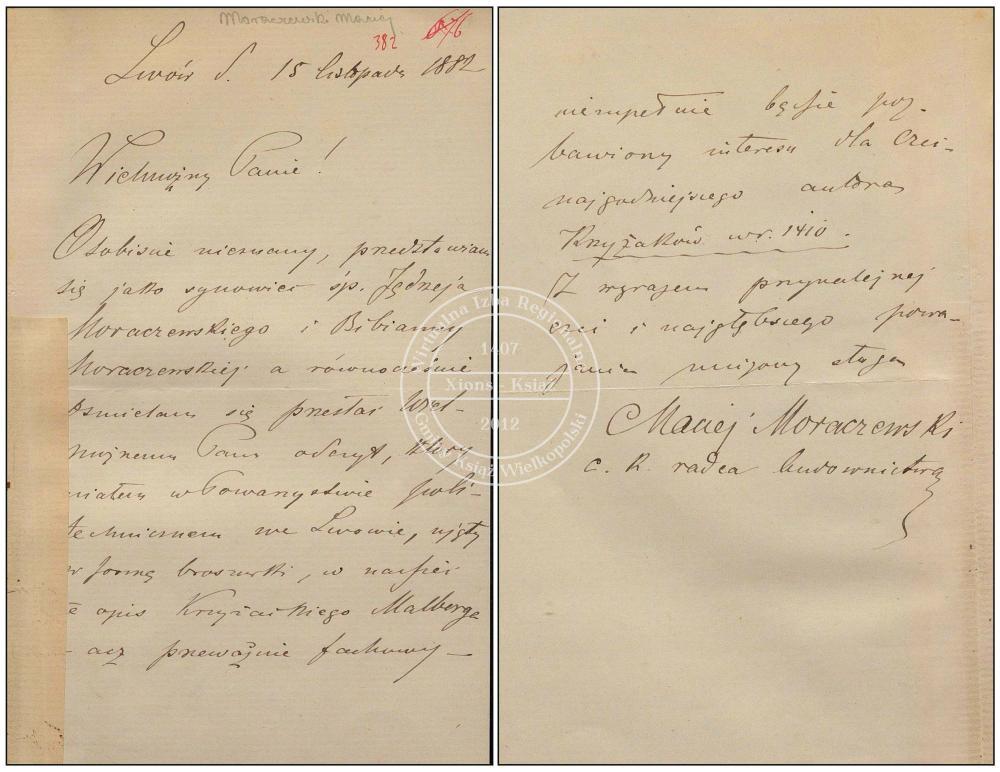 Moraczewski Maciej
382
Lwów d. 15 listopada 1882
Wielmożny Panie!
Osobiście nieznany, przedstawiam
się jako synowiec śp. Jędrzeja
Moraczewskiego i Bibianny
Moraczewskiej a równocześnie
ośmielam się przesłać Wiel-
możnemu Panu odczyt, który
miałem w Towarzystwie poli-
technicznem we Lwowie, ujęty
w formę broszurki, w nadziei
że opis Krzyżackiego Malborga
- acz przeważnie fachowy -
niezupełnie będzie poz-
bawiony interesu dla czci-
najgodniejszego autora
Krzyżaków w r. 1410.
Z wyrazem przynależnej
czci i najgłębszego powa-
żania uniżony sługa
Maciej Moraczewski
c. k. radca budownictwa
Wirtualna Izba Regionalna
1407
Xions - Książ
2012
Gmina Książ Wielkopolski